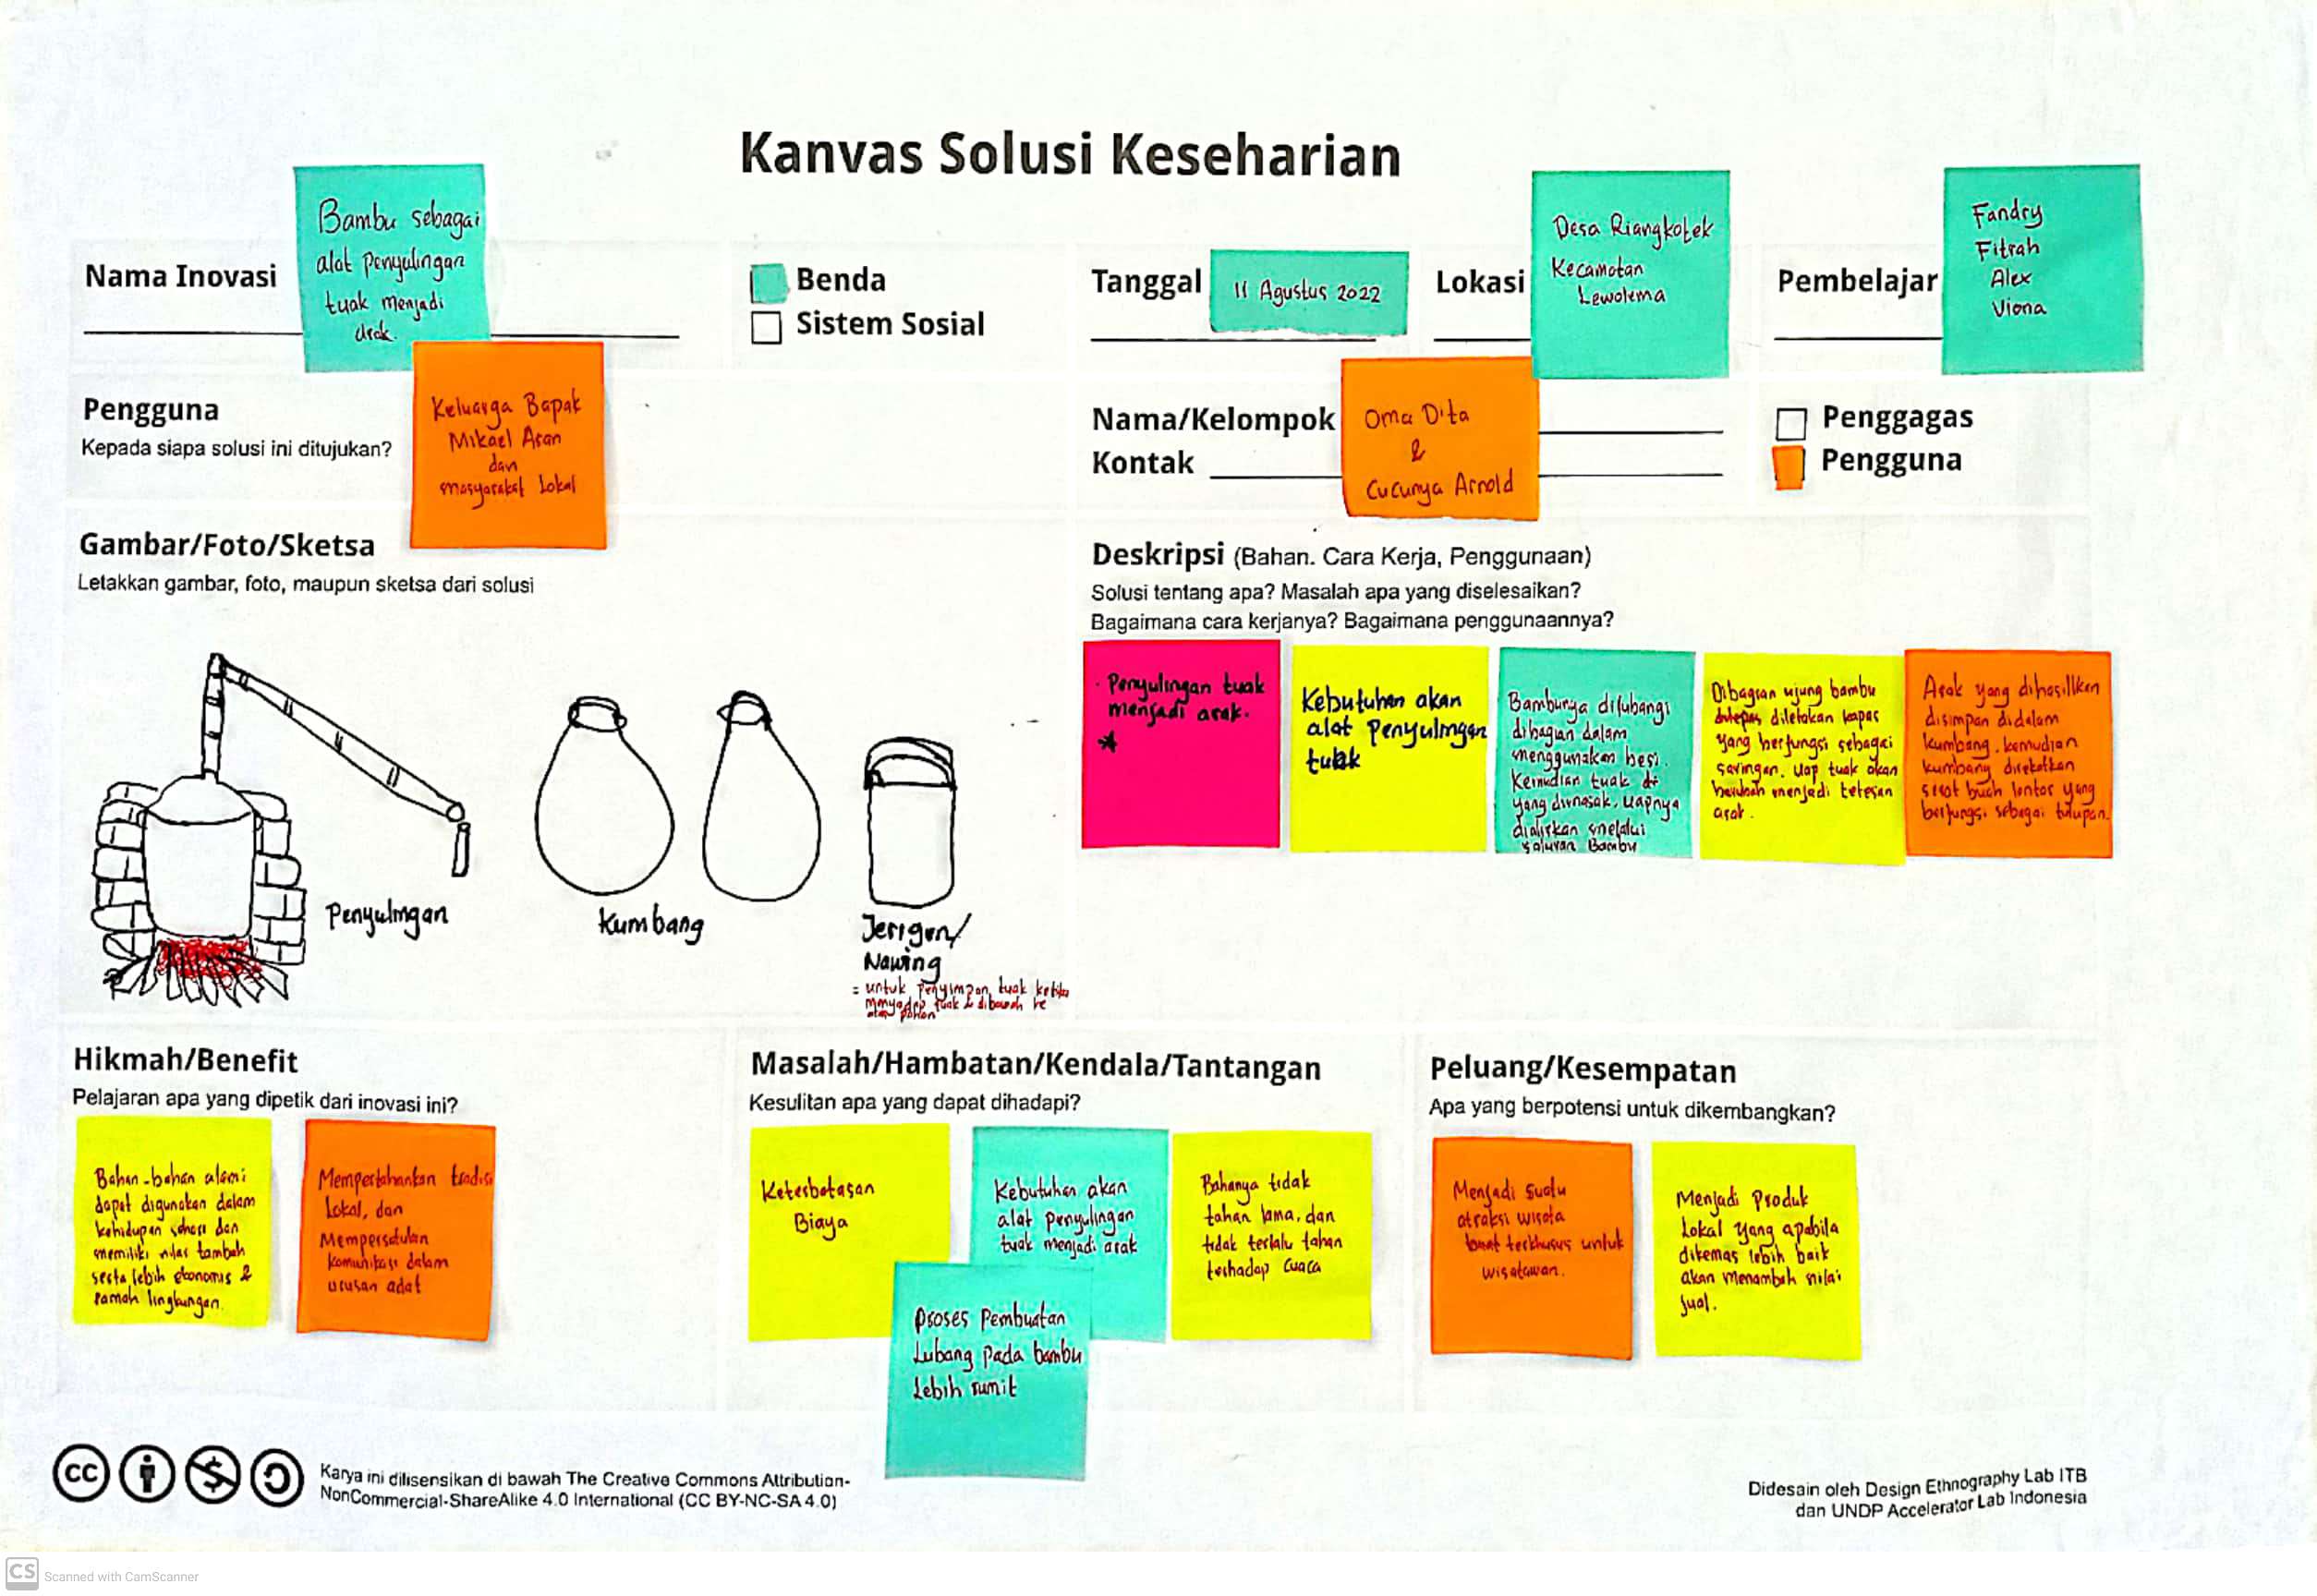 Kanvas Solusi Keseharian
Nama Inovasi
Bambu sebagai
alat penyulingan
tuak menjadi
arak.
Benda
Sistem Sosial
Tanggal
11 Agustus 2022
Lokasi
Desa Riangkotek
Kecamatan
Lewolema
Pembelajar
Fandry
Fitrah
Alex
Viona
Pengguna
Kepada siapa solusi ini ditujukan?
Keluarga Bapak
Mikael Aran
dan
masyarakat Lokal
Nama/Kelompok
Kontak
Oma Dita
&
Cucunya Arnold
Penggagas
Pengguna
Gambar/Foto/Sketsa
Letakkan gambar, foto, maupun sketsa dari solusi
Penyulingan
Kumbang
Jerigen/
Nawing
= untuk Penyimpan tuak ketika
menyadap tuak & dibawah ke
atas pohon
Deskripsi (Bahan. Cara Kerja, Penggunaan)
Solusi tentang apa? Masalah apa yang diselesaikan?
Bagaimana cara kerjanya? Bagaimana penggunaannya?
Penyulingan tuak
menjadi arak.
Kebutuhan akan
alat Penyulingan
tuak
Bambunya dilubangi
dibagian dalam
menggunakan besi.
Kemudian tuak
yang dimasak, uapnya
dialirkan melalui
saluran Bambu
Dibagian ujung bambu
diletakan kapas
yang berfungsi sebagai
saringan. Uap tuak akan
berubah menjadi tetesan
arak.
Arak yang dihasilkan
disimpan didalam
kumbang. kemudian
kumbang direkatkan
buah lontar yang
berfungsi sebagai tutupan.
Hikmah/Benefit
Pelajaran apa yang dipetik dari inovasi ini?
Bahan-bahan alami
dapat digunakan dalam
kehidupan sehari dan
memiliki nilai tambah
serta lebih ekonomis &
ramah lingkungan.
Mempertahankan tradisi
Lokal, dan
Mempersatukan
komunikasi dalam
urusan adat
Masalah/Hambatan/Kendala/Tantangan
Kesulitan apa yang dapat dihadapi?
Keterbatasan
Biaya
Kebutuhan akan
alat penyulingan
tuak menjadi arak
Proses Pembuatan
Lubang pada bambu
Lebih rumit
Bahanya tidak
tahan lama, dan
tidak terlalu tahan
terhadap cuaca
Peluang/Kesempatan
Apa yang berpotensi untuk dikembangkan?
Menjadi suatu
atraksi wisata
terkhusus untuk
wisatawan.
Menjadi Produk
Lokal yang apabila
dikemas lebih baik
akan menambah nilai
jual.
Karya ini dilisensikan di bawah The Creative Commons Attribution-
NonCommercial-ShareAlike 4.0 International (CC BY-NC-SA 4.0)
Didesain oleh Design Ethnography Lab ITB
dan UNDP Accelerator Lab Indonesia
CS Scanned with CamScanner